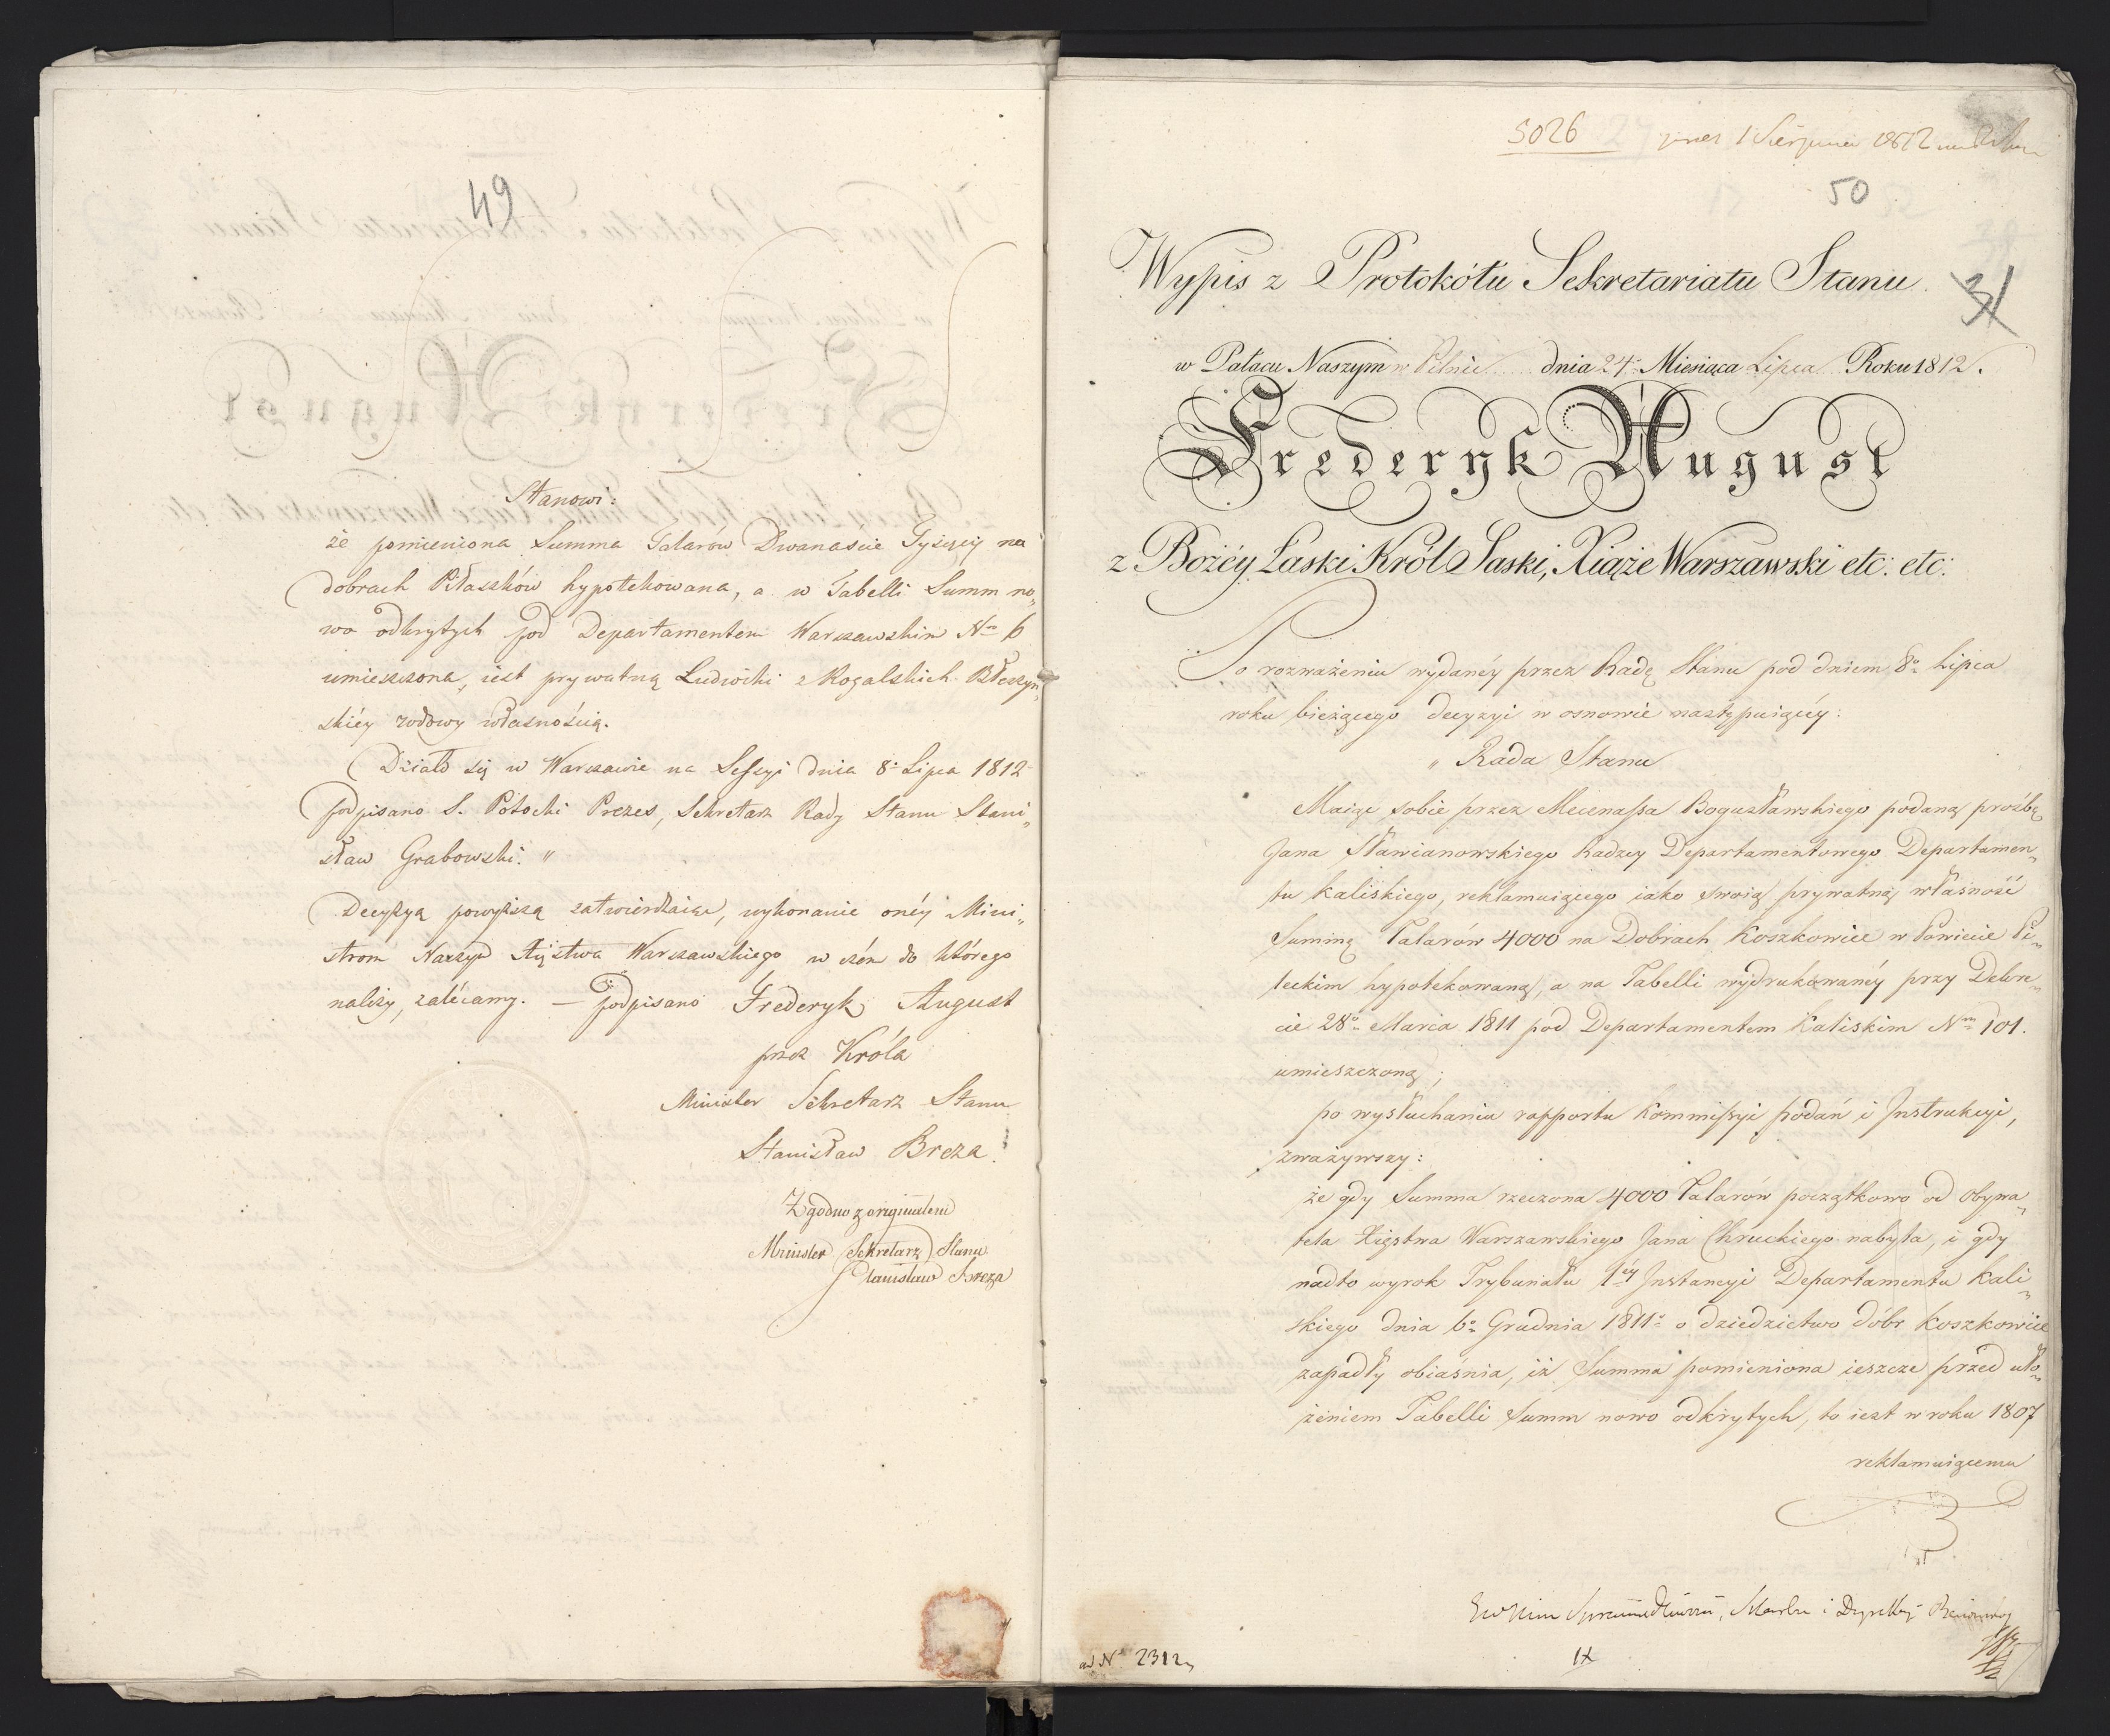 49
Stanowi:
że pomieniona Summa Talarów Dwanaście Tysięcy na
dobrach Pilaszków hypotekowana, a w Tabelli Summ no„
wo odkrytych pod Departamentem Warszawskim Nro 6
umieszczona, iest prywatną Ludwiki z Rogalskich Błeszyń„
skiéy wdowy własnością.
Działo się w Warszawie na Sessyi dnia 8o Lipca 1812
podpisano S. Potocki Prezes, Sekretarz Rady Stanu Stani„
sław Grabowski. "
Decyzyą powyższą zatwierdzaiąc, wykonanie onéy Mini„
strom Naszym Xięstwa Warszawskiego w czém do którego
należy, zalecamy. — podpisano Frederyk August
przez Króla
Minister Sekretarz Stanu
Stanisław Breza.
Zgodno z originałem
Minister Sekretarz Stanu
Stanisław Breza
5026 prez 1 Sierpnia 1812
50
Wypis z Protokółu Sekretariatu Stanu.
31
w Pałacu Naszym w Pilnic dnia 24o Miesiąca Lipca Roku 1812.
Frederyk August
z Bożéy Łaski Król Saski, Xiąże Warszawski etc: etc:
Po rozważeniu wydanéy przez Radę Stanu pod dniem 8o Lipca
roku bieżącego decyzyi w osnowie następuiącéy:
„ Rada Stanu
Maiąc sobie przez Mecenassa Bogusławskiego podaną prośbę
Jana Stawianowskiego Radzcy Departamentowego Departamen„
tu Kaliskiego, reklamuiącego iako swoią prywatną własność
Summę Talarów 4000 na Dobrach Koszkowice w Powiecie Pi„
leckim hypotekowaną, a na Tabelli wydrukowanéy przy Dekre„
cie 28o Marca 1811 pod Departamentem Kaliskim Nrm 101.
umieszczoną;
po wysłuchaniu rapportu Kommissyi podań i Instrukcyi,
zważywszy:
że gdy Summa rzeczona 4000 Talarów początkowo od Obywa„
tela Xięstwa Warszawskiego Jana Chruckiego nabyta, i gdy
nadto wyrok Trybunału 1éy Instancyi Departamentu Kali„
skiego dnia 6o Grudnia 1811o o dziedzictwo dóbr Koszkowice
zapadły obiaśnia, iż Summa pomieniona ieszcze przed uło„
żeniem Tabelli Summ nowo odkrytych, to iest w roku 1807
reklamuiącemu
Skarbu i
ad No 2312